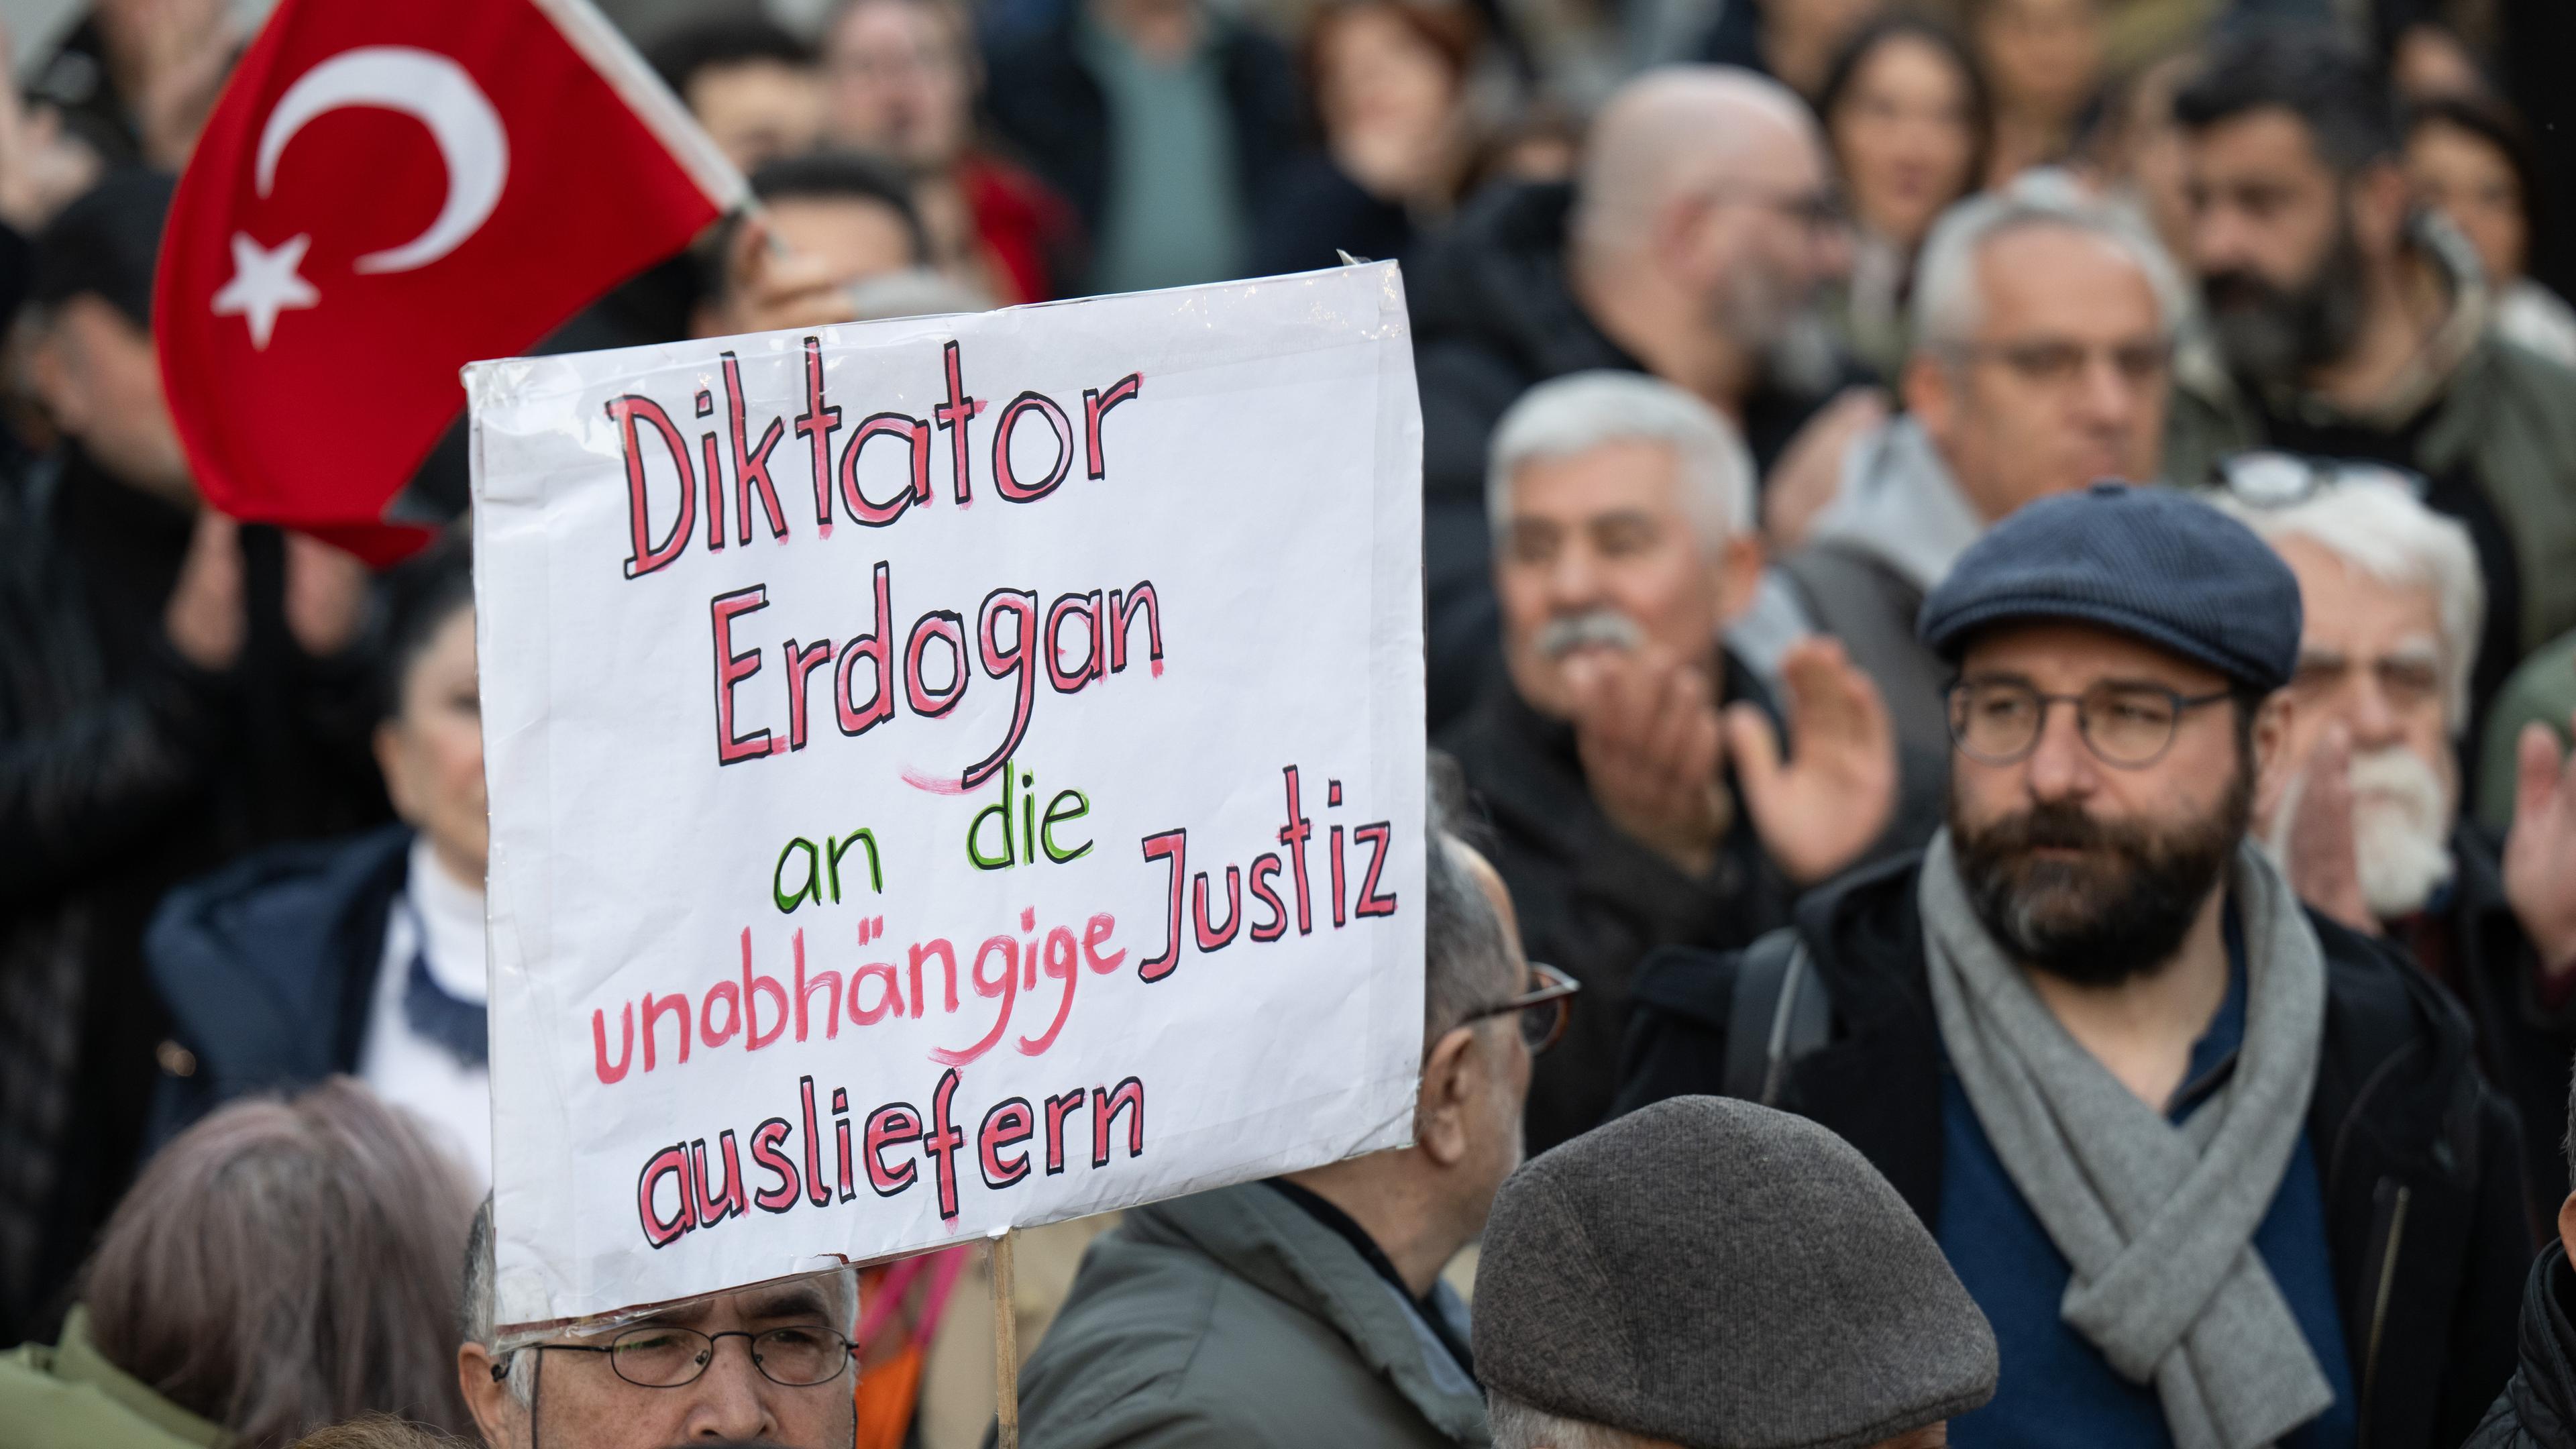 Diktator
Erdogan
an die
unabhängige Justiz
ausliefern